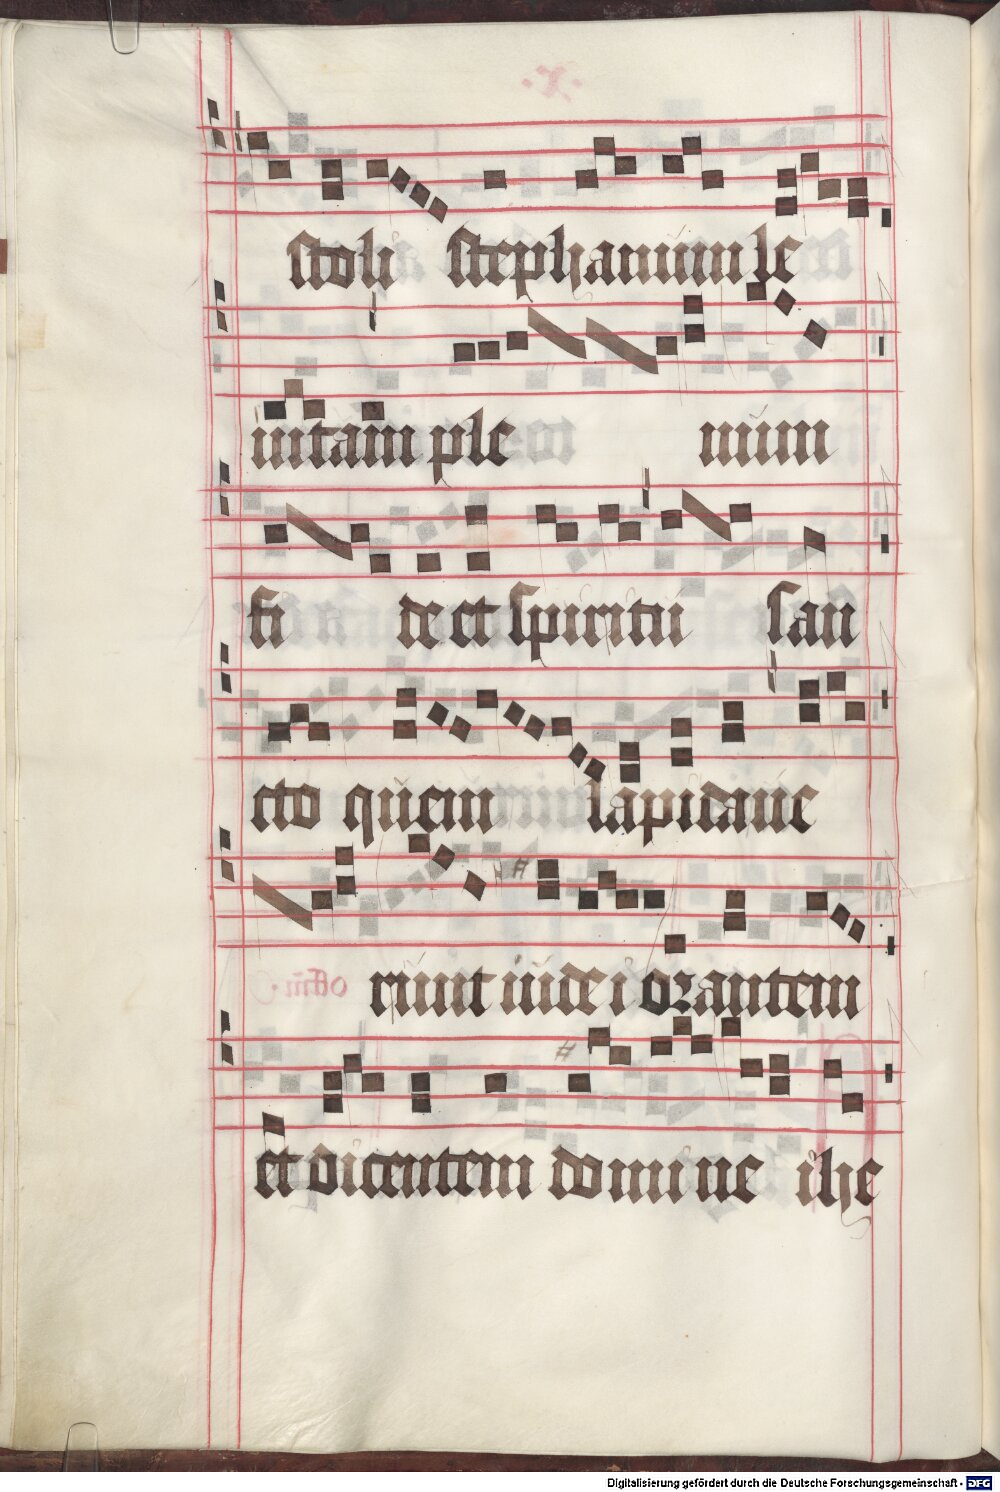 stoli stephanum le
uitam ple num
fi de et spiritu san
cto quem lapidaue
runt iudei orantem
et dicentem domine ihe
Digitalisierung gefördert durch die Deutsche Forschungsgemeinschaft - DFG